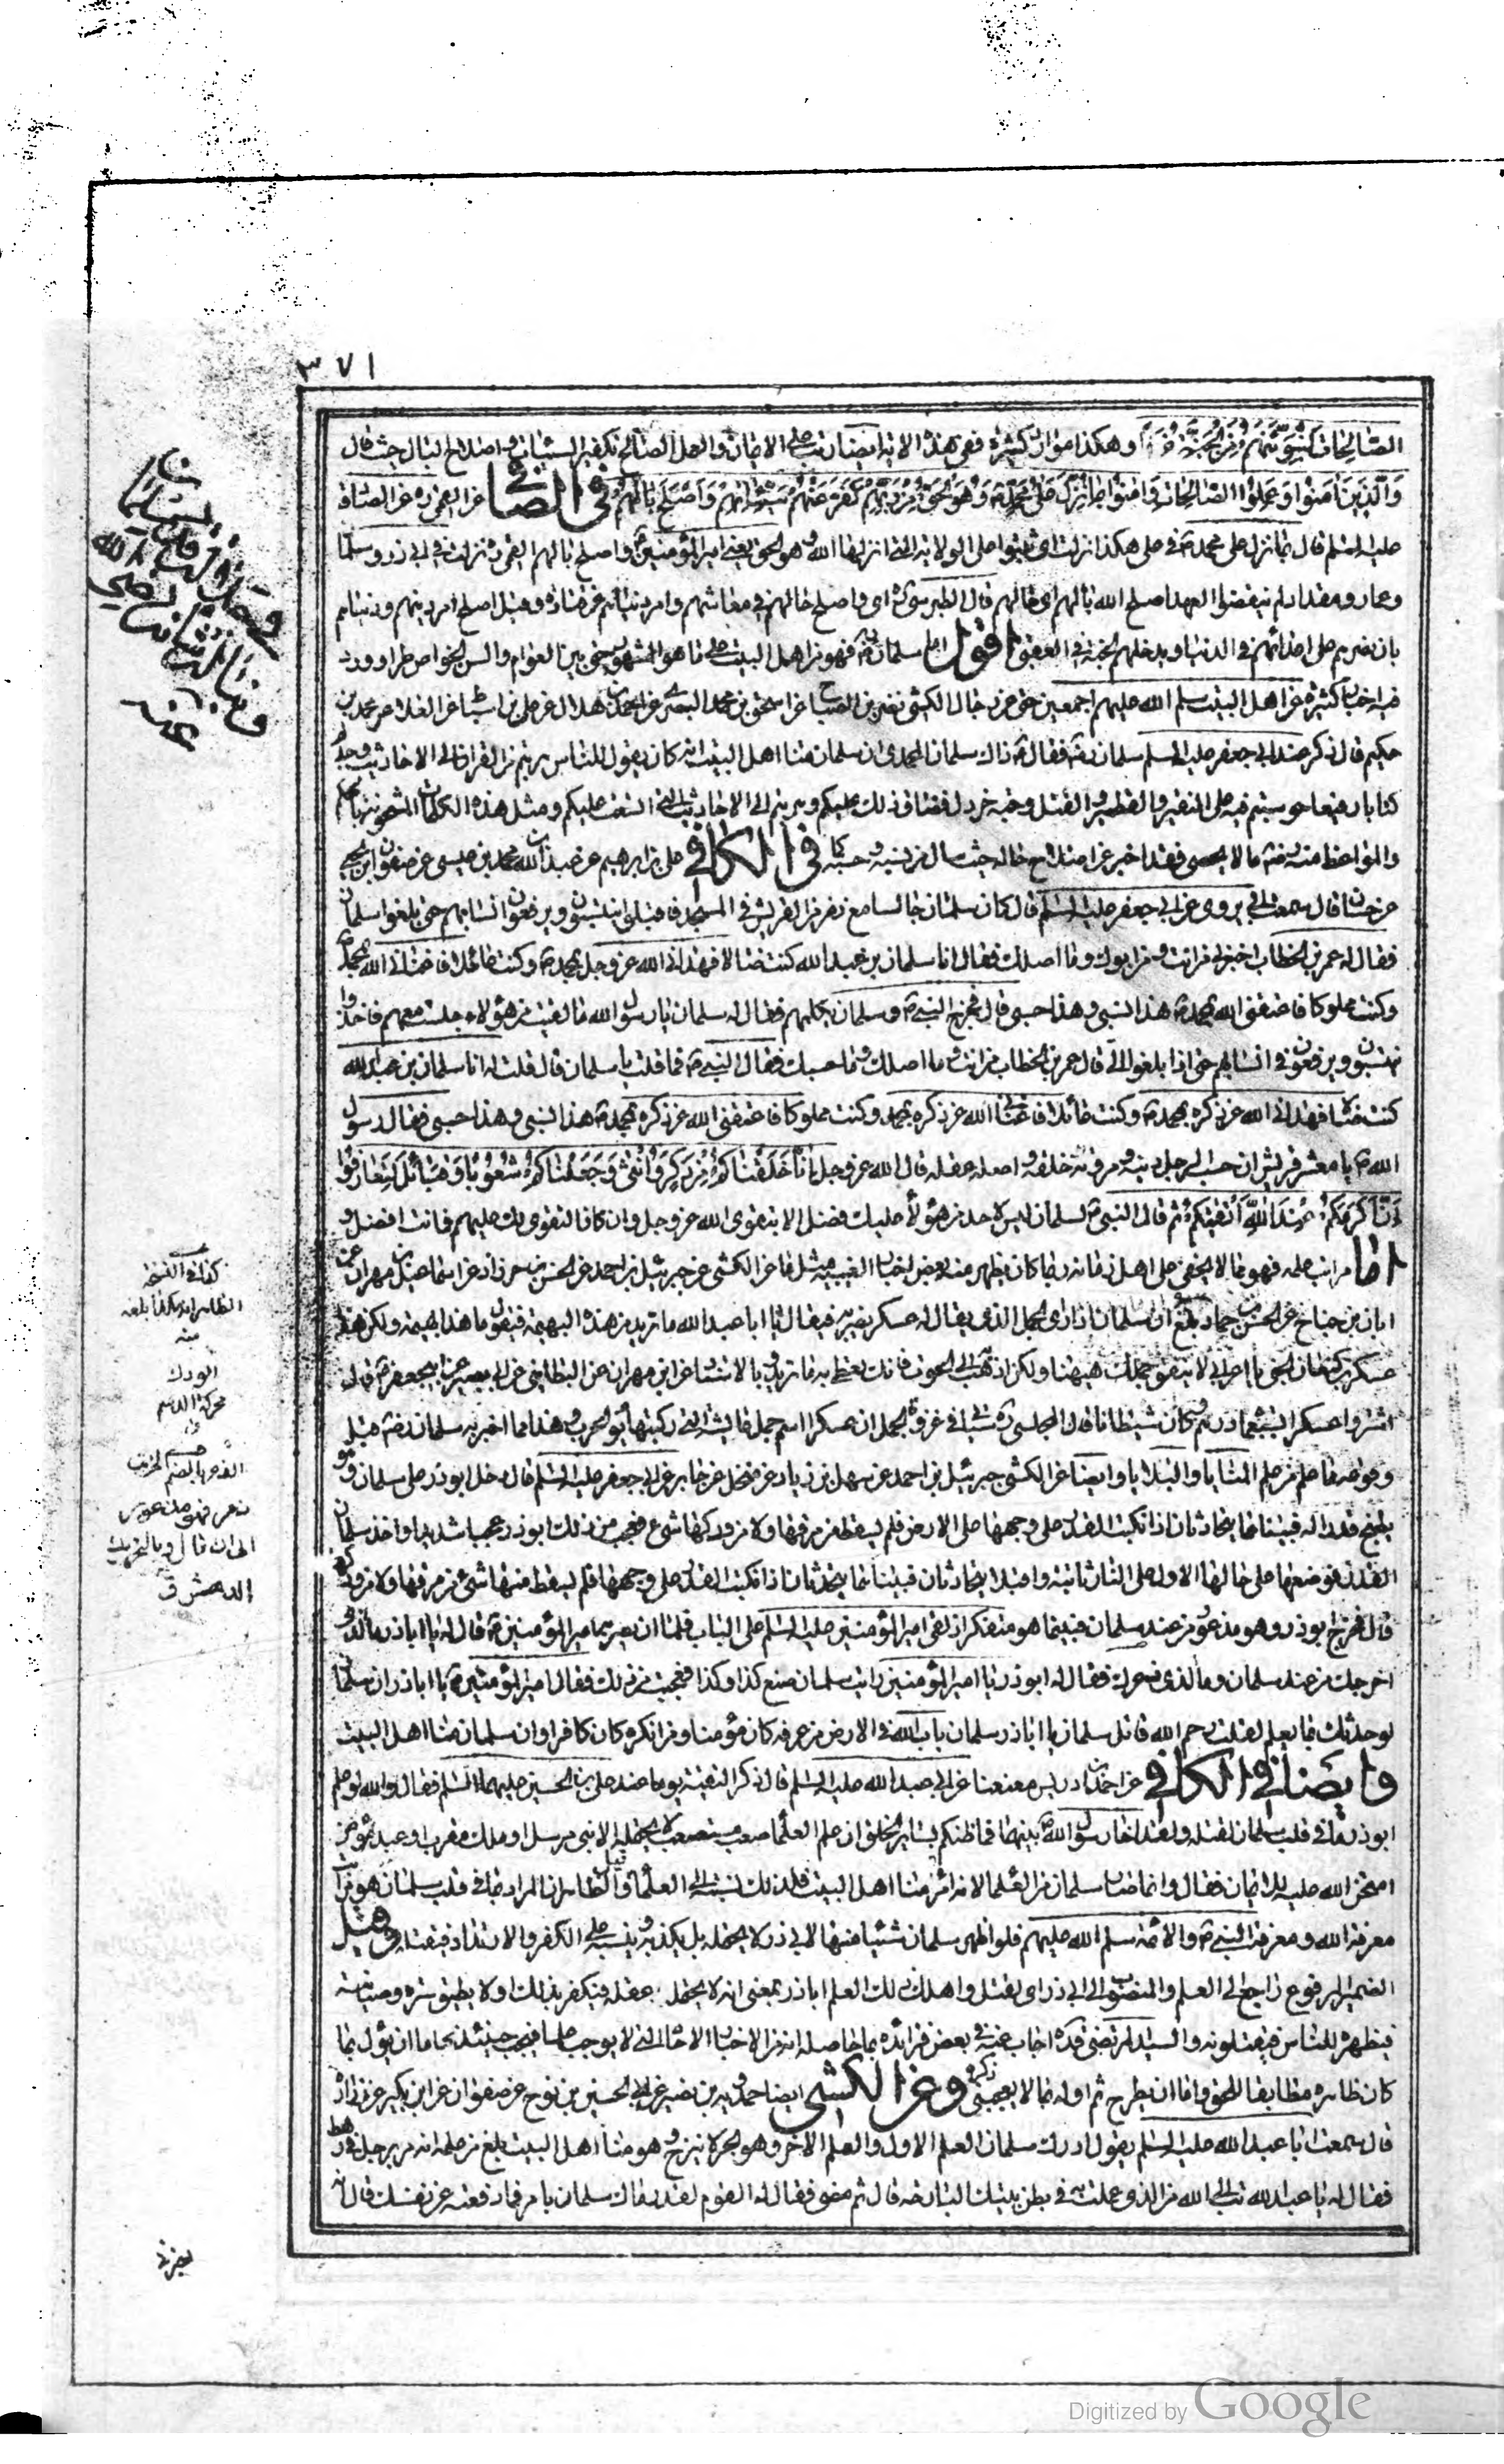 ٣٧١
الصالحات لنبوئنهم من الجنة غرفا وهكذا موارد كثيرة ففي هذه الاية ايضا رتب على الايمان والعمل الصالح تكفير السيئات واصلاح البال حيث قال
والذين امنوا وعملوا الصالحات وامنوا بما نزل على محمد ص وهو الحق من ربهم كفر عنهم سيئاتهم واصلح بالهم في الصافي عن القمي ره عن الصادق
عليه السلم قال بما نزل على محمد ص في علي هكذا نزلت اي ثبتوا على الولاية التي انزلها الله وهو الحق يعني امير المؤمنين واصلح بالهم القمي نزلت في ابي ذر وسلمان
وعمار ومقداد لم ينقضوا العهد اصلح الله بالهم اي حالهم قال الطبرسي اي واصلح حالهم في معاشهم وامر دنياهم عن قتادة وقيل اصلح امر دينهم ودنياهم
بان نصرهم على اعدائهم في الدنيا ويدخلهم الجنة في العقبى اقول اما سلمان فهو من اهل البيت على ما هو المشهور حتى بين العوام والسن الخواص طرا وورد
فيه اخبار كثيرة عن اهل البيت سلم الله عليهم اجمعين فعن رجال الكشي نصر بن الصباح عن اسحق بن محمد البصري عن احمد بن هلال عن علي بن اسباط عن العلاء عن محمد بن
حكيم قال ذكر عند ابي جعفر عليه السلم سلمان فقال ذاك سلمان المحمدي ان سلمان منا اهل البيت انه كان يقول للناس هربتم من القران الى الاحاديث وجدتم
كتابا رفيعا حوسبتم فيه على النقير والقطمير والفتيل وحبة خردل فضاق ذلك عليكم وهربتم الى الاحاديث التي اتسعت عليكم ومثل هذه الكلمات
والمواعظ منه رضه ما لا يحصى فقد اخبر عن امتداح حاله حيث سال من نسبه وحسبه كما في الكافي علي بن ابرهيم عن عبد الله بن محمد بن عيسى عن صفوان بن يحيى
عن حنان قال سمعت ابي يروي عن ابي جعفر عليه السلم قال كان سلمان جالسا مع نفر من القريش في المسجد فاقبلوا ينتسبون ويرفعون انسابهم حتى بلغوا سلمان
فقال له عمر بن الخطاب اخبرني من انت ومن ابوك وما اصلك فقال انا سلمان بن عبد الله كنت ضالا فهداني الله عز وجل بمحمد ص وكنت عائلا فاغناني الله بمحمد
وكنت مملوكا فاعتقني الله بمحمد ص هذا نسبي وهذا حسبي قال فخرج النبي ص وسلمان يكلمهم فقال له سلمان يا رسول الله ما لقيت من هؤلاء جلست معهم فاخذوا
ينتسبون ويرفعون في انسابهم حتى اذا بلغوا الي قال عمر بن الخطاب من انت وما اصلك وما حسبك فقال النبي ص فما قلت يا سلمان قال قلت له انا سلمان بن عبد الله
كنت ضالا فهداني الله عز ذكره بمحمد ص وكنت عائلا فاغناني الله عز ذكره بمحمد وكنت مملوكا فاعتقني الله عز ذكره بمحمد ص هذا نسبي وهذا حسبي فقال رسول
الله ص يا معشر قريش ان حسب الرجل دينه ومروته خلقه واصله عقله قال الله عز وجل انا خلقناكم من ذكر وانثى وجعلناكم شعوبا وقبائل لتعارفوا
ان اكرمكم عند الله اتقيكم ثم قال النبي ص لسلمان ليس لاحد من هؤلاء عليك فضل الا بتقوى الله عز وجل وان كان التقوى لك عليهم فانت افضل و
اما مراتب علمه فهو مما لا يخفى على اهل زمانه ربما كان يظهر منه بعض اخبار الغيبية مثل ما عن الكشي عن جبرئيل بن احمد عن الحسن بن خرزاد عن اسماعيل بن مهران عن
ابان بن جناح عن الحسن بن حماد بلغ ان سلمان اذا راى الجمل الذي يقال له عسكر يضربه فيقال يا ابا عبد الله ما تريد من هذه البهيمة فيقول ما هذا بهيمة ولكن هذا
عسكر بن كنعان الجني يا اعرابي لا ينفق جملك هيهنا ولكن اذهب الى الحوئب فانك تعطى به ما تريد وبالاسناد عن ابن مهران عن البطائني عن ابي بصير عن ابي جعفر ع قال
اشتروا عسكرا بسبعمائة درهم وكان شيطانا قال المجلسي ره سياتي في غزوة الجمل ان عسكرا اسم جمل عايشة التي ركبتها يوم الحرب وهذا مما اخبر به سلمان رضه قبل
وقوعه مما علم من علم المنايا والبلايا وايضا عن الكشي جبرئيل بن احمد عن سهل بن زياد عن منخل عن جابر عن ابي جعفر عليه السلم قال دخل ابوذر على سلمان وهو
يطبخ قدرا له فبينا هما يتحادثان اذا انكبت القدر على وجهها على الارض فلم يسقط من مرقها ولا من ودكها شيء فعجب من ذلك ابوذر عجبا شديدا واخذ سلمان
القدر فوضعها على حالها الاول على النار ثانية واقبلا يتحادثان فبينما هما يتحدثان اذا انكبت القدر على وجهها فلم يسقط منها شيء من مرقها ولا من ودكها
قال فخرج ابوذر وهو مذعور من عند سلمان فبينما هو متفكر اذ لقى امير المؤمنين عليه السلم على الباب فلما ان بصر به امير المؤمنين ع قال له يا اباذر ما الذي
اخرجك من عند سلمان وما الذي ذعرك فقال له ابوذر يا امير المؤمنين رايت سلمان صنع كذا وكذا فعجبت من ذلك فقال امير المؤمنين ع يا اباذر ان سلمان
لو حدثك بما يعلم لقلت رحم الله قاتل سلمان يا اباذر سلمان باب الله في الارض من عرفه كان مؤمنا ومن انكره كان كافرا وان سلمان منا اهل البيت
وايضا في الكافي عن احمد بن ادريس معنعنا عن ابي عبد الله عليه السلم قال ذكر التقية يوما عند علي بن الحسين عليهما السلم فقال والله لو علم
ابوذر ما في قلب سلمان لقتله ولقد اخا رسول الله بينهما فما ظنكم بسائر الخلق ان علم العلماء صعب مستصعب لا يحتمله الا نبي مرسل او ملك مقرب او عبد مؤمن
امتحن الله قلبه للايمان فقال وانما صار سلمان من العلماء لانه امرء منا اهل البيت فلذلك نسبته الى العلماء والظاهر ان المراد بما في قلب سلمان هو مراتب
معرفة الله ومعرفة النبي ص والائمة سلم الله عليهم فلو اظهر سلمان شيئا منها لابي ذر لا يحتمله بل يكذبه وينسبه على الكفر والارتداد فيقتله وقيل
الضمير المرفوع راجع الى العلم والمنصوب الى ابي ذر اي لقتل واهلك ذلك العلم اباذر بمعنى انه لا يحتمله عقله فيكفر بذلك او لا يطيق ستره وصيانته
فيظهره للناس فيقتلونه والسيد المرتضى قده اجاب عنه في بعض فوائده بما حاصله انه من الاخبار الاحاد التي لا يوجب علما فيجب حينئذ اما ان يؤل بما
كان ظاهره مطابقا للحق واما ان يطرح ثم اوله بما لا يعجبني ذكره وعن الكشي ايضا حمدويه بن نصير عن ابي الحسين بن نوح عن صفوان عن ابن بكير عن زرارة
قال سمعت ابا عبد الله عليه السلم يقول ادرك سلمان العلم الاول والعلم الاخر وهو بحر لا ينزح وهو منا اهل البيت بلغ من علمه انه مر برجل في رهط
فقال له يا عبد الله تب الى الله من الذي عملت به في بطن بيتك البارحة قال ثم مضى فقال له القوم لقد رماك سلمان بامر فما دفعته عن نفسك قال انه
كذا في النسخة
الظاهر انه بلغه
منه
الودك
محركة الدسم
ق
الذعر بالضم الخوف
ذعر فهو مذعور
الى ان قال وبالتحريك
الدهش ق
اخبرني
Digitized by Google